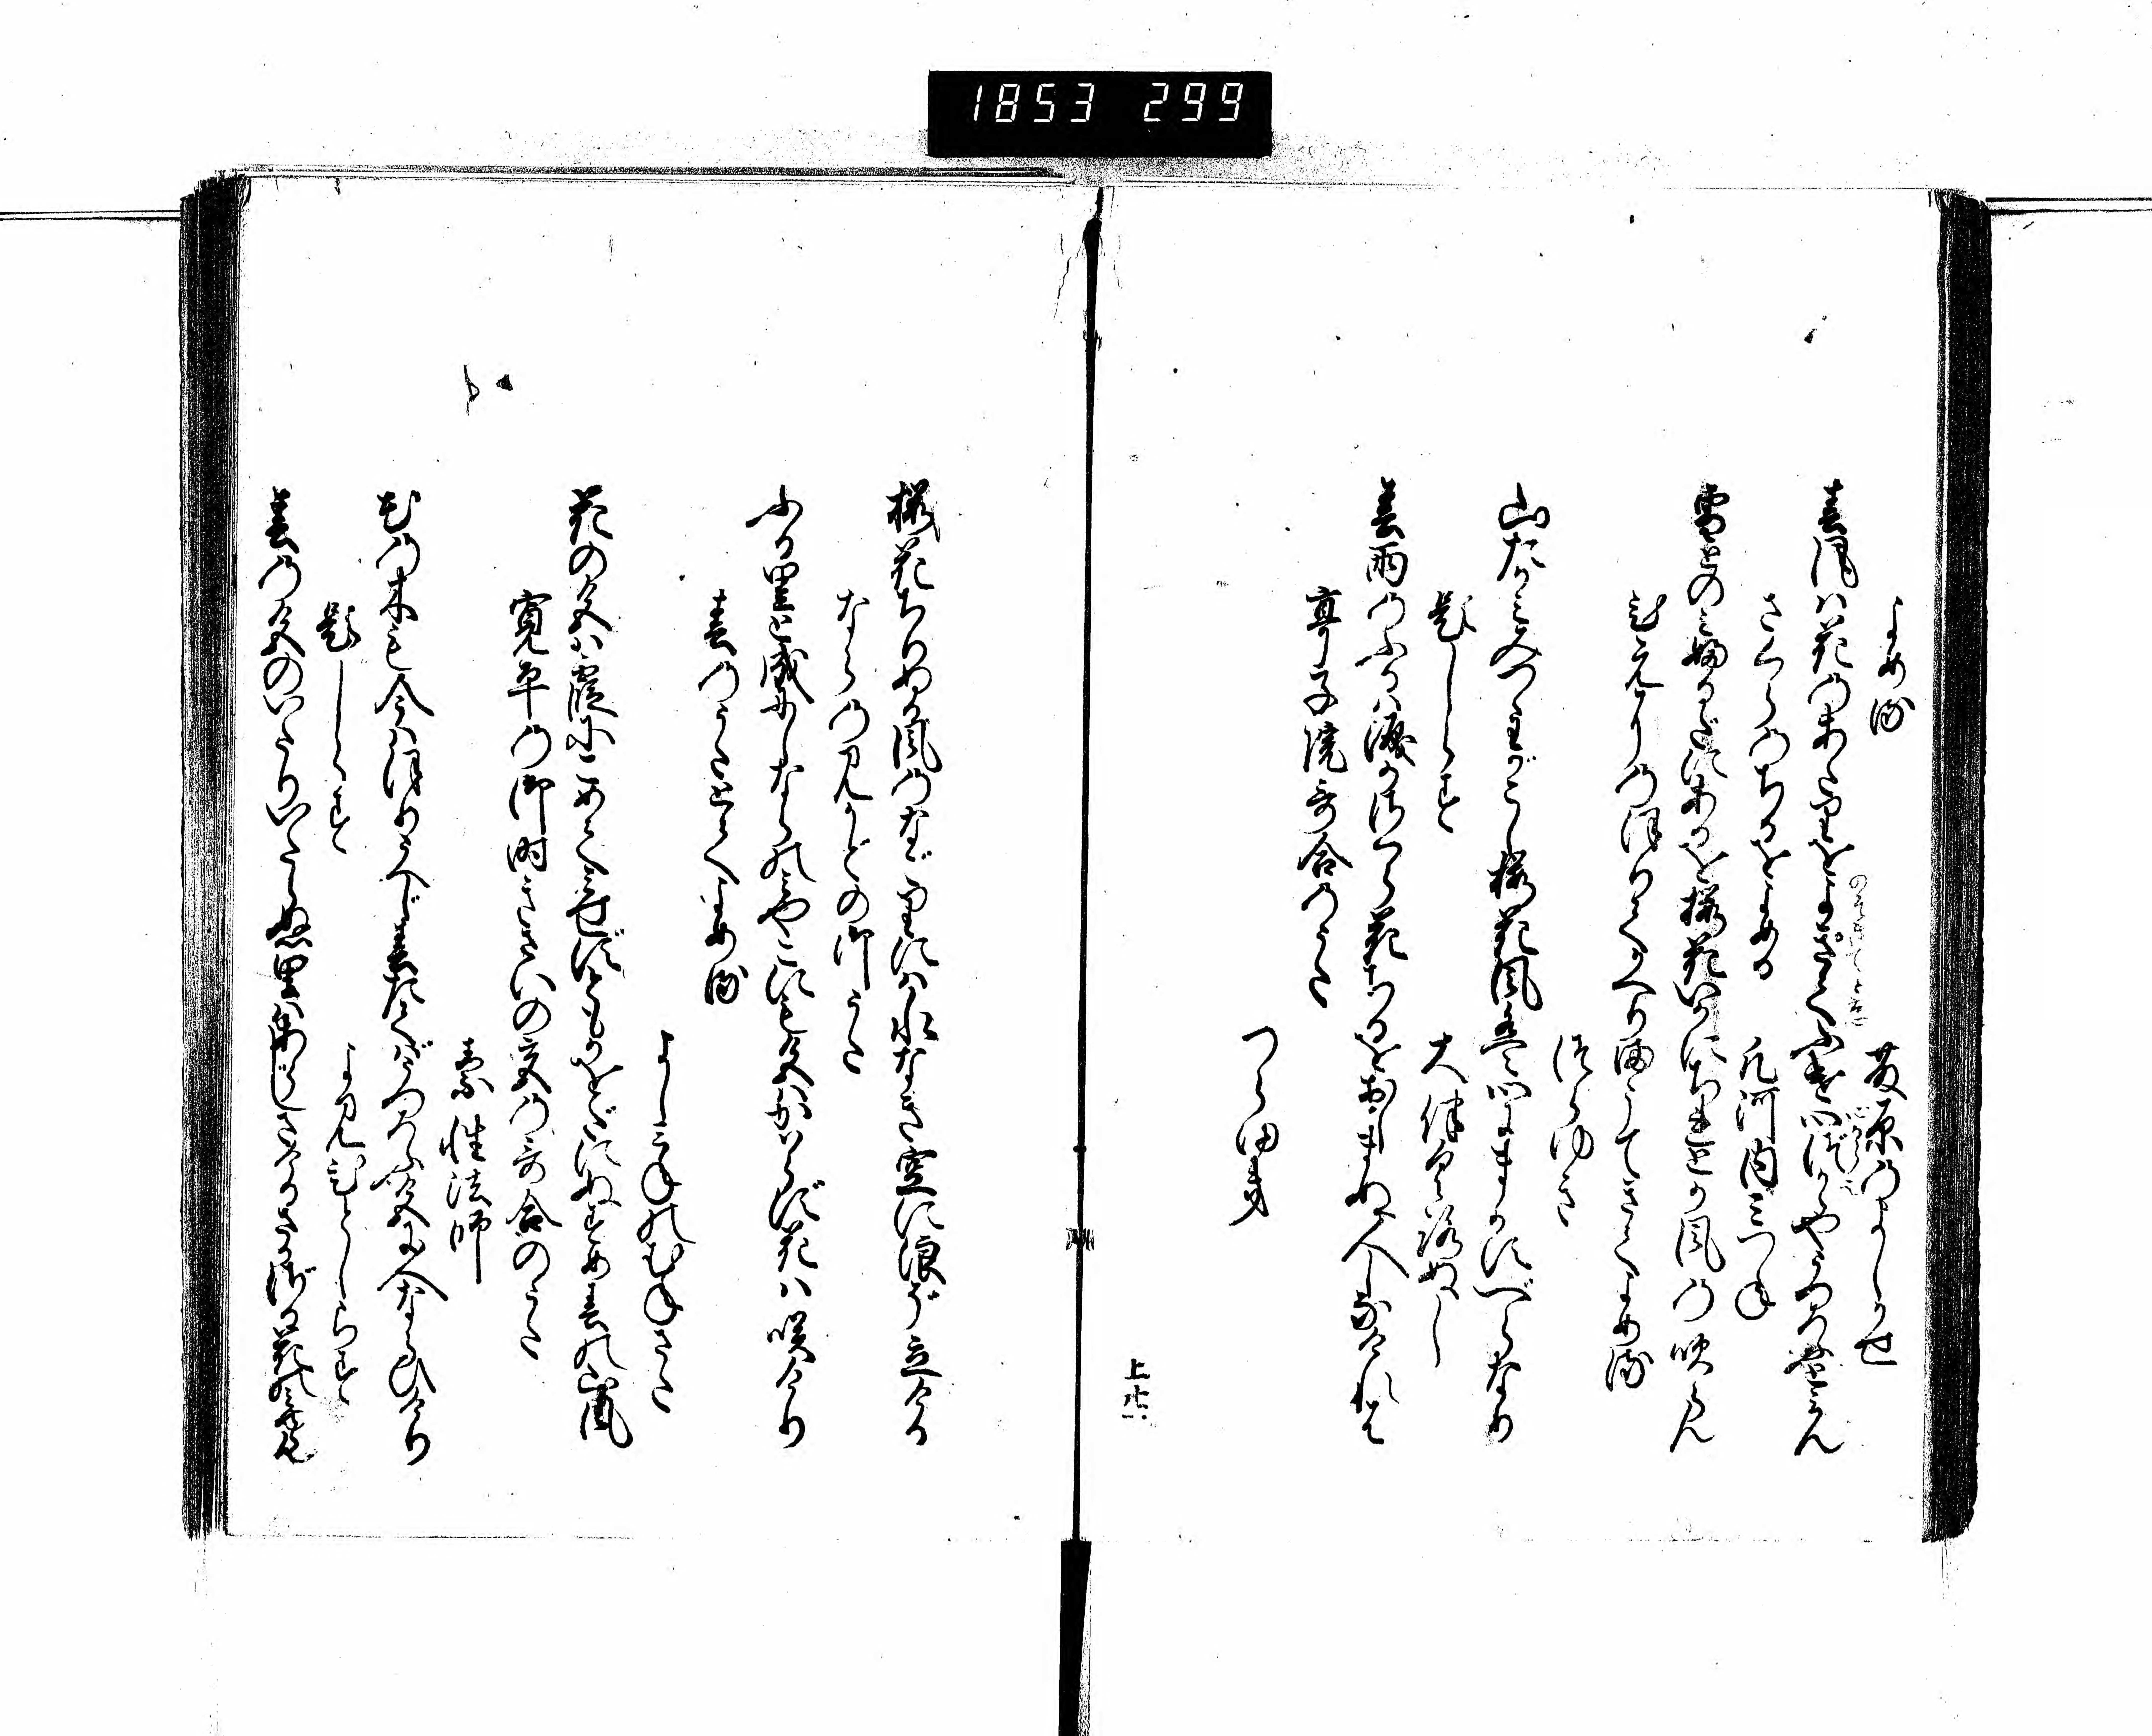 1853 299
よめる
藤原のよしかせ
春風は花のあたりをよきてふけ心づからやうつろふとみん
さくらのちるをよめる
凡河内みつね
雪とのみふるだにあるを桜花いかにちれとか風の吹らん
ひえにのほりてかへりまうてきてよめる
つらゆき
山たかみみつゝわがこし桜花風は心にまかすべらなり
題しらす
大伴黒ぬし
春雨のふるは涙かさくら花ちるをおしまぬ人しなけれは
亭子院哥合のうた
つらゆき
上
桜花ちりぬる風のなごりには水なき空に浪ぞ立ける
ならの見かどの御うた
ふる里と成にしならのみやこにも色はかはらず花は咲けり
春のうたとてよめる
よしみねのむねさた
花の色は霞にこめてみせずともかをだにぬすめ春の山風
寛平の御時きさいの宮の哥合のうた
素性法師
花の木も今はほりうへじ春たてばうつろふ色に人ならひけり
題しらす
よみ人しらす
春の色のいたりいたらぬ里はあらじさけるさかざる花のみゆらん